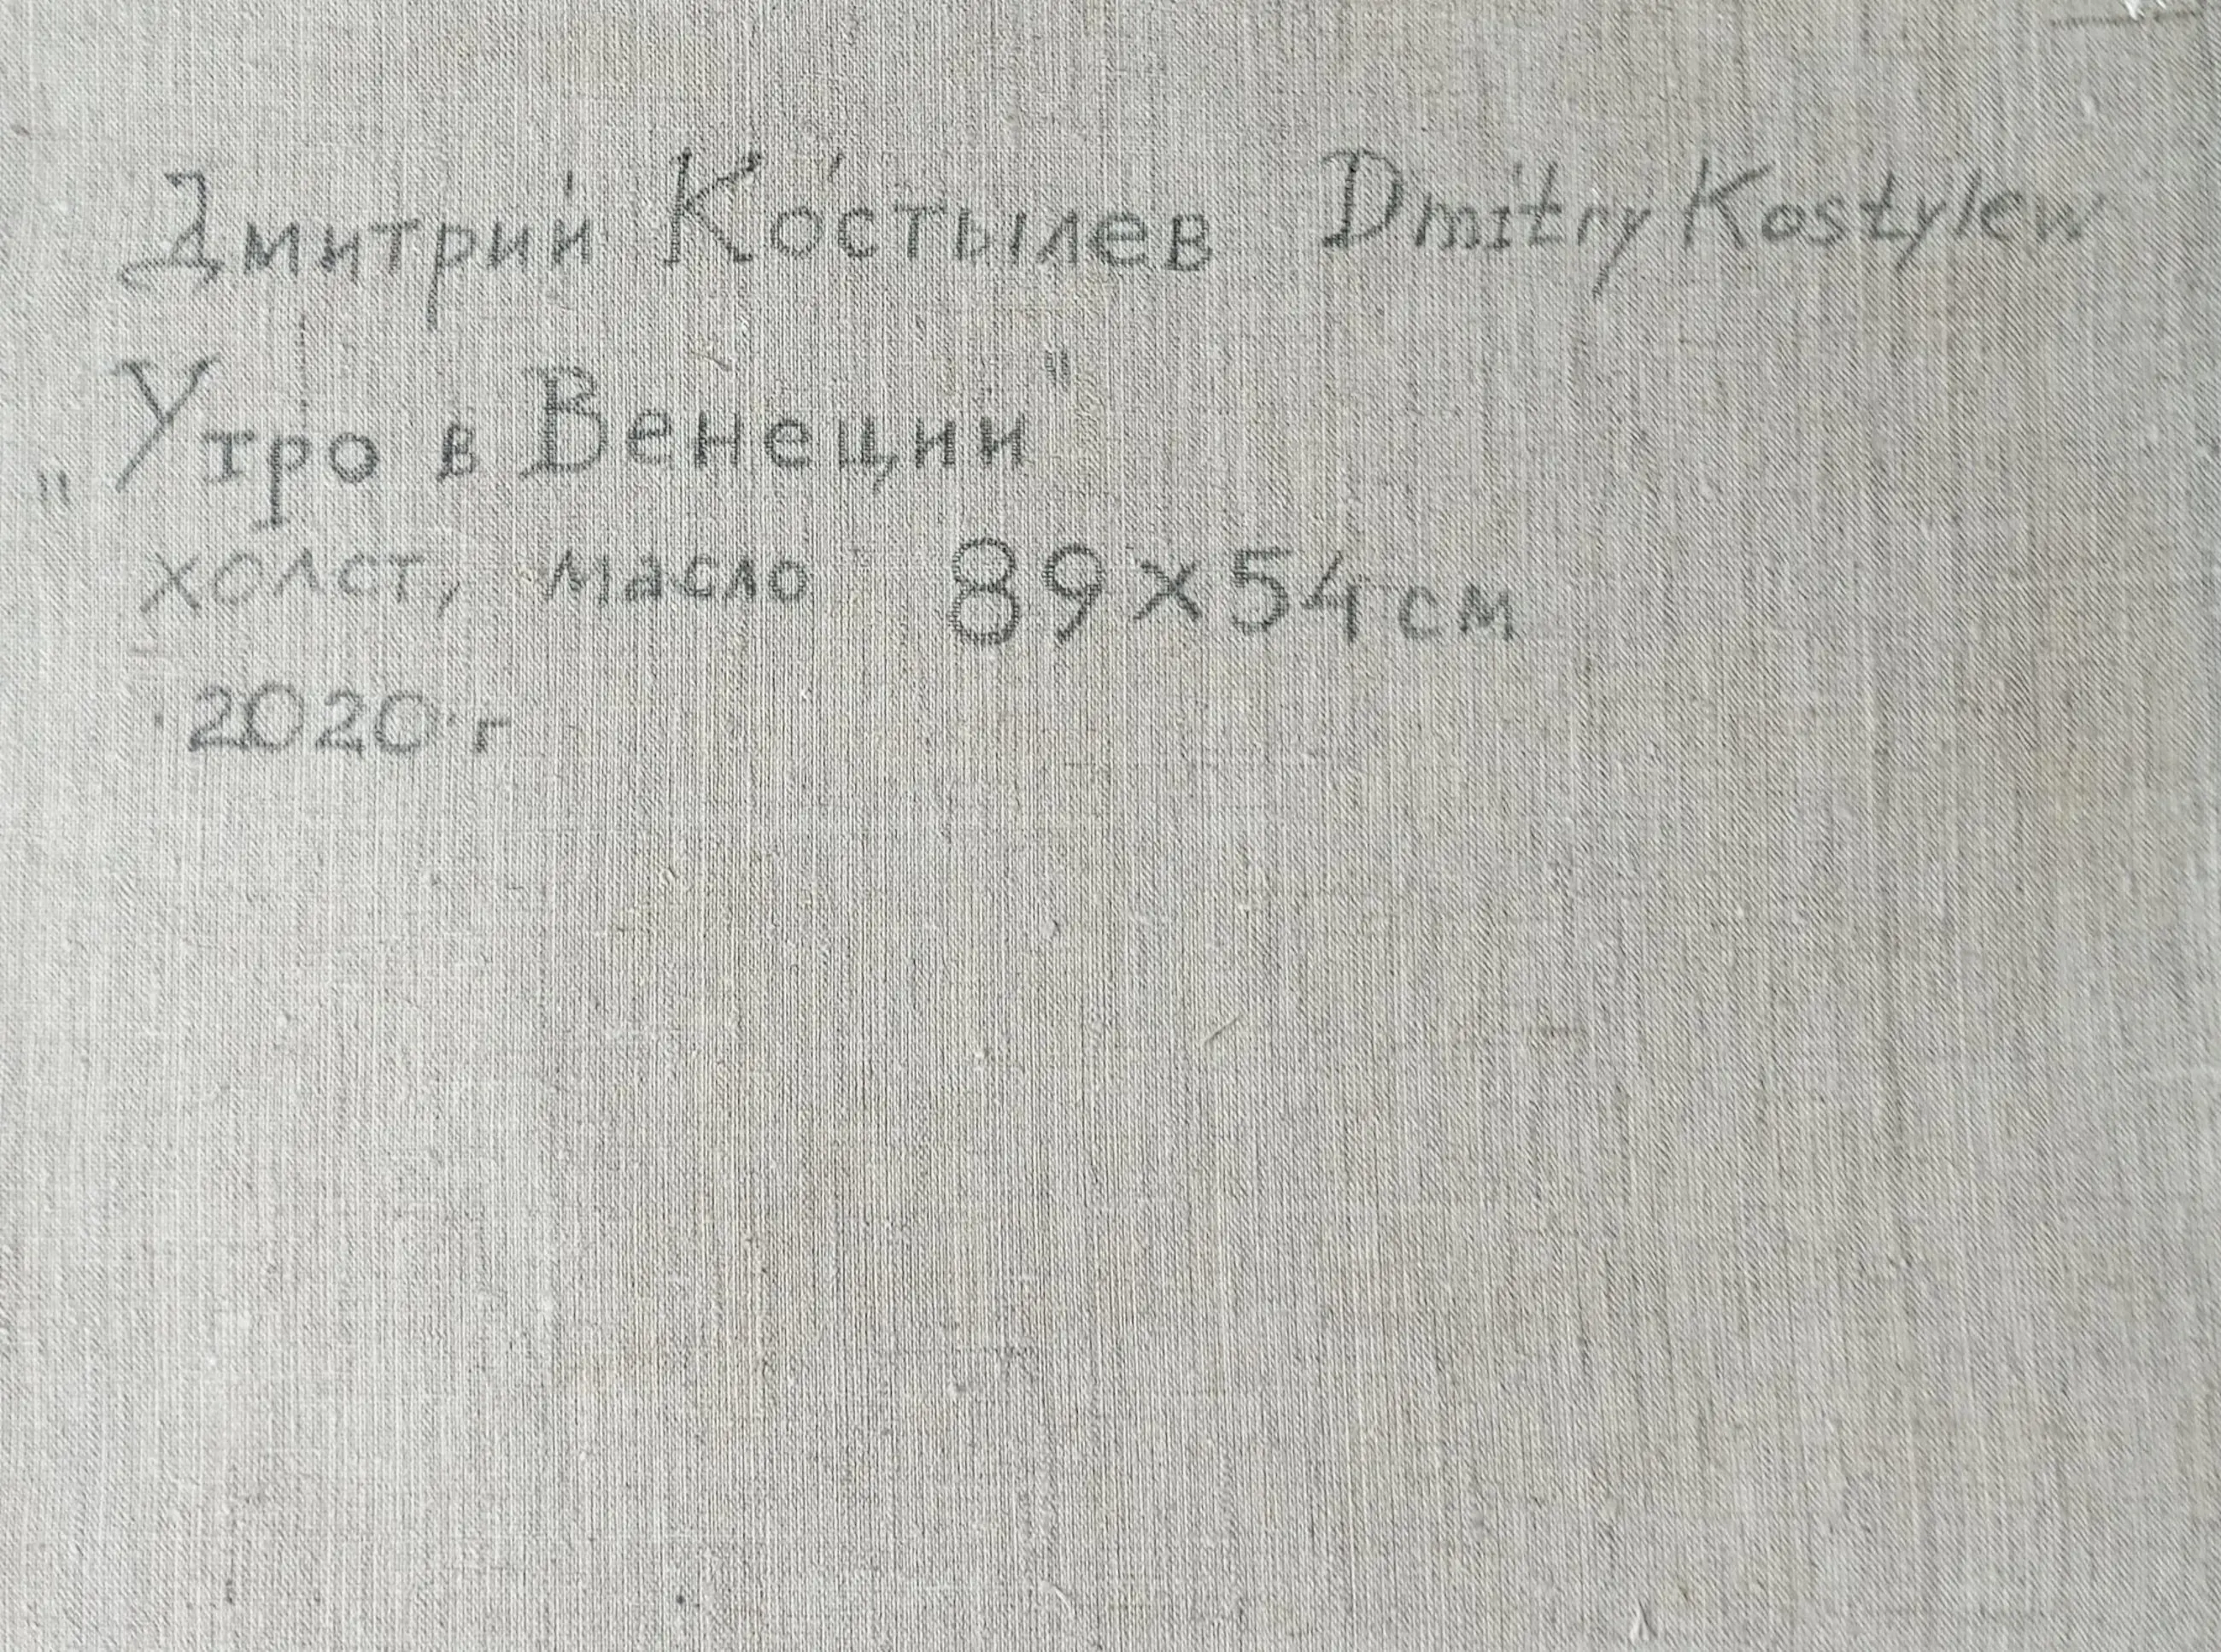 Дмитрий Костылев Dmitry Kostylew
„Утро в Венеции"
холст, масло 89x54см
2020 г